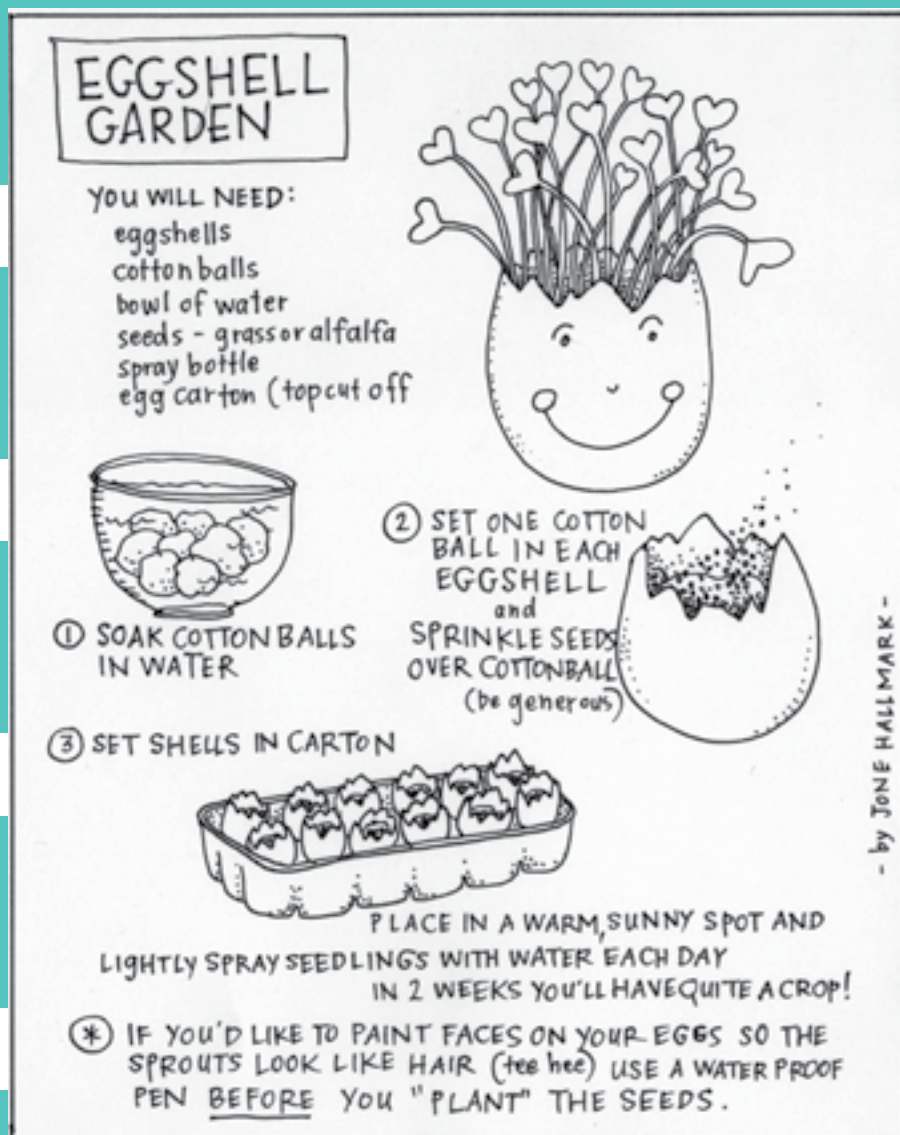 EGGSHELL
GARDEN
YOU WILL NEED:
eggshells
cotton balls
bowl of water
seeds - grass or alfalfa
spray bottle
egg carton (top cut off
① SOAK COTTON BALLS
IN WATER
② SET ONE COTTON
BALL IN EACH
EGGSHELL
and
SPRINKLE SEEDS
OVER COTTONBALL
(be generous)
③ SET SHELLS IN CARTON
PLACE IN A WARM, SUNNY SPOT AND
LIGHTLY SPRAY SEEDLINGS WITH WATER EACH DAY
IN 2 WEEKS YOU'LL HAVE QUITE A CROP!
* IF YOU'D LIKE TO PAINT FACES ON YOUR EGGS SO THE
SPROUTS LOOK LIKE HAIR (tee hee) USE A WATER PROOF
PEN BEFORE YOU "PLANT" THE SEEDS.
- by JONE HALLMARK -